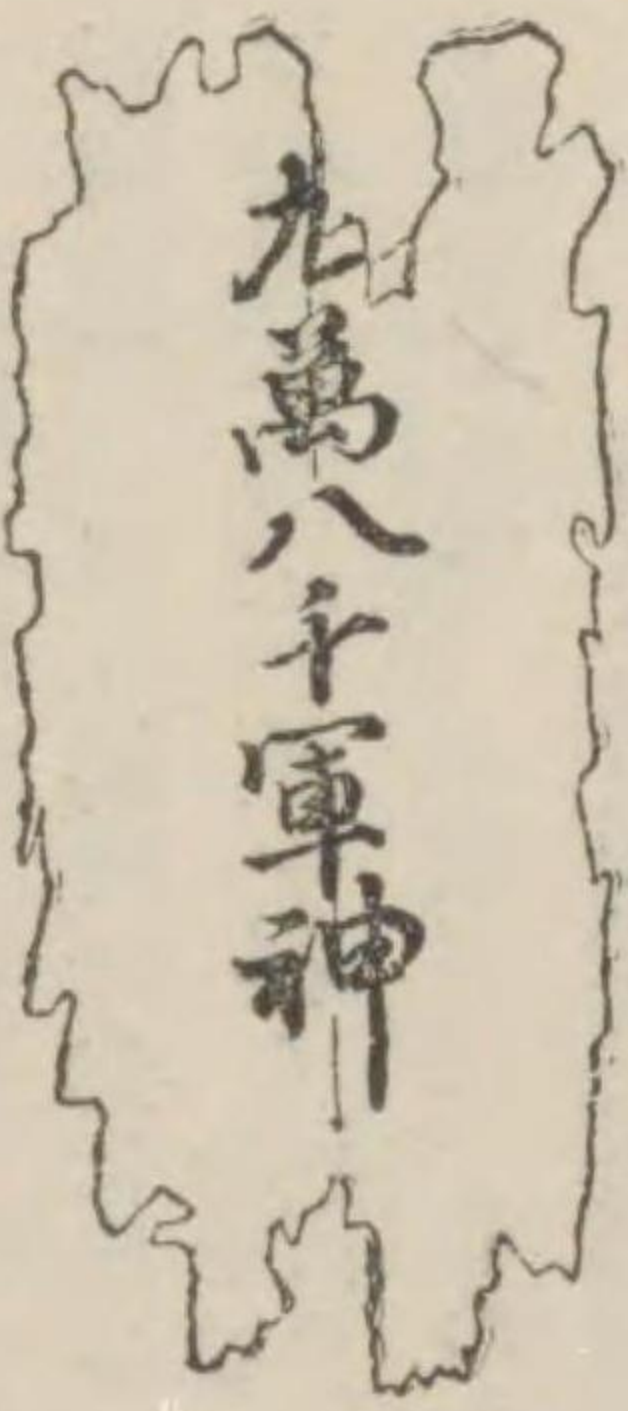 九萬八千軍神